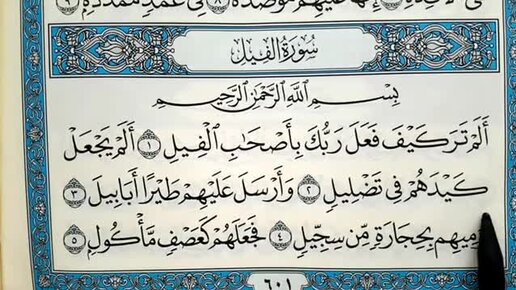 ٱلْأَفْـِٔدَةِ ۝٧ إِنَّهَا عَلَيْهِم مُّؤْصَدَةٌ ۝٨ فِي عَمَدٍ مُّمَدَّدَةٍۭ ۝٩
سُورَةُ الفِيلِ
بِسْمِ ٱللَّهِ ٱلرَّحْمَٰنِ ٱلرَّحِيمِ
أَلَمْ تَرَ كَيْفَ فَعَلَ رَبُّكَ بِأَصْحَٰبِ ٱلْفِيلِ ۝١ أَلَمْ يَجْعَلْ
كَيْدَهُمْ فِي تَضْلِيلٍ ۝٢ وَأَرْسَلَ عَلَيْهِمْ طَيْرًا أَبَابِيلَ ۝٣
تَرْمِيهِم بِحِجَارَةٍ مِّن سِجِّيلٍ ۝٤ فَجَعَلَهُمْ كَعَصْفٍ مَّأْكُولٍۭ ۝٥
٦٠١